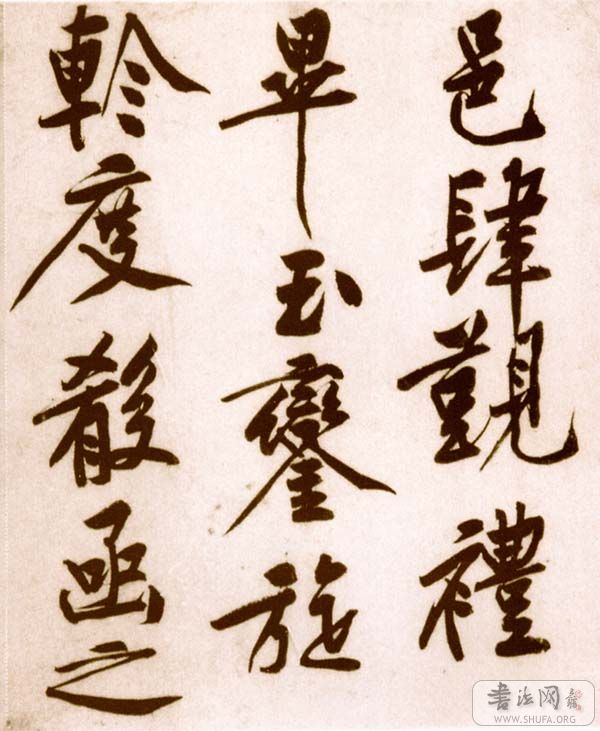 邑肆覲禮
畢玉鑾旋
軫度殽函之
書法网
WWW.SHUFA.ORG